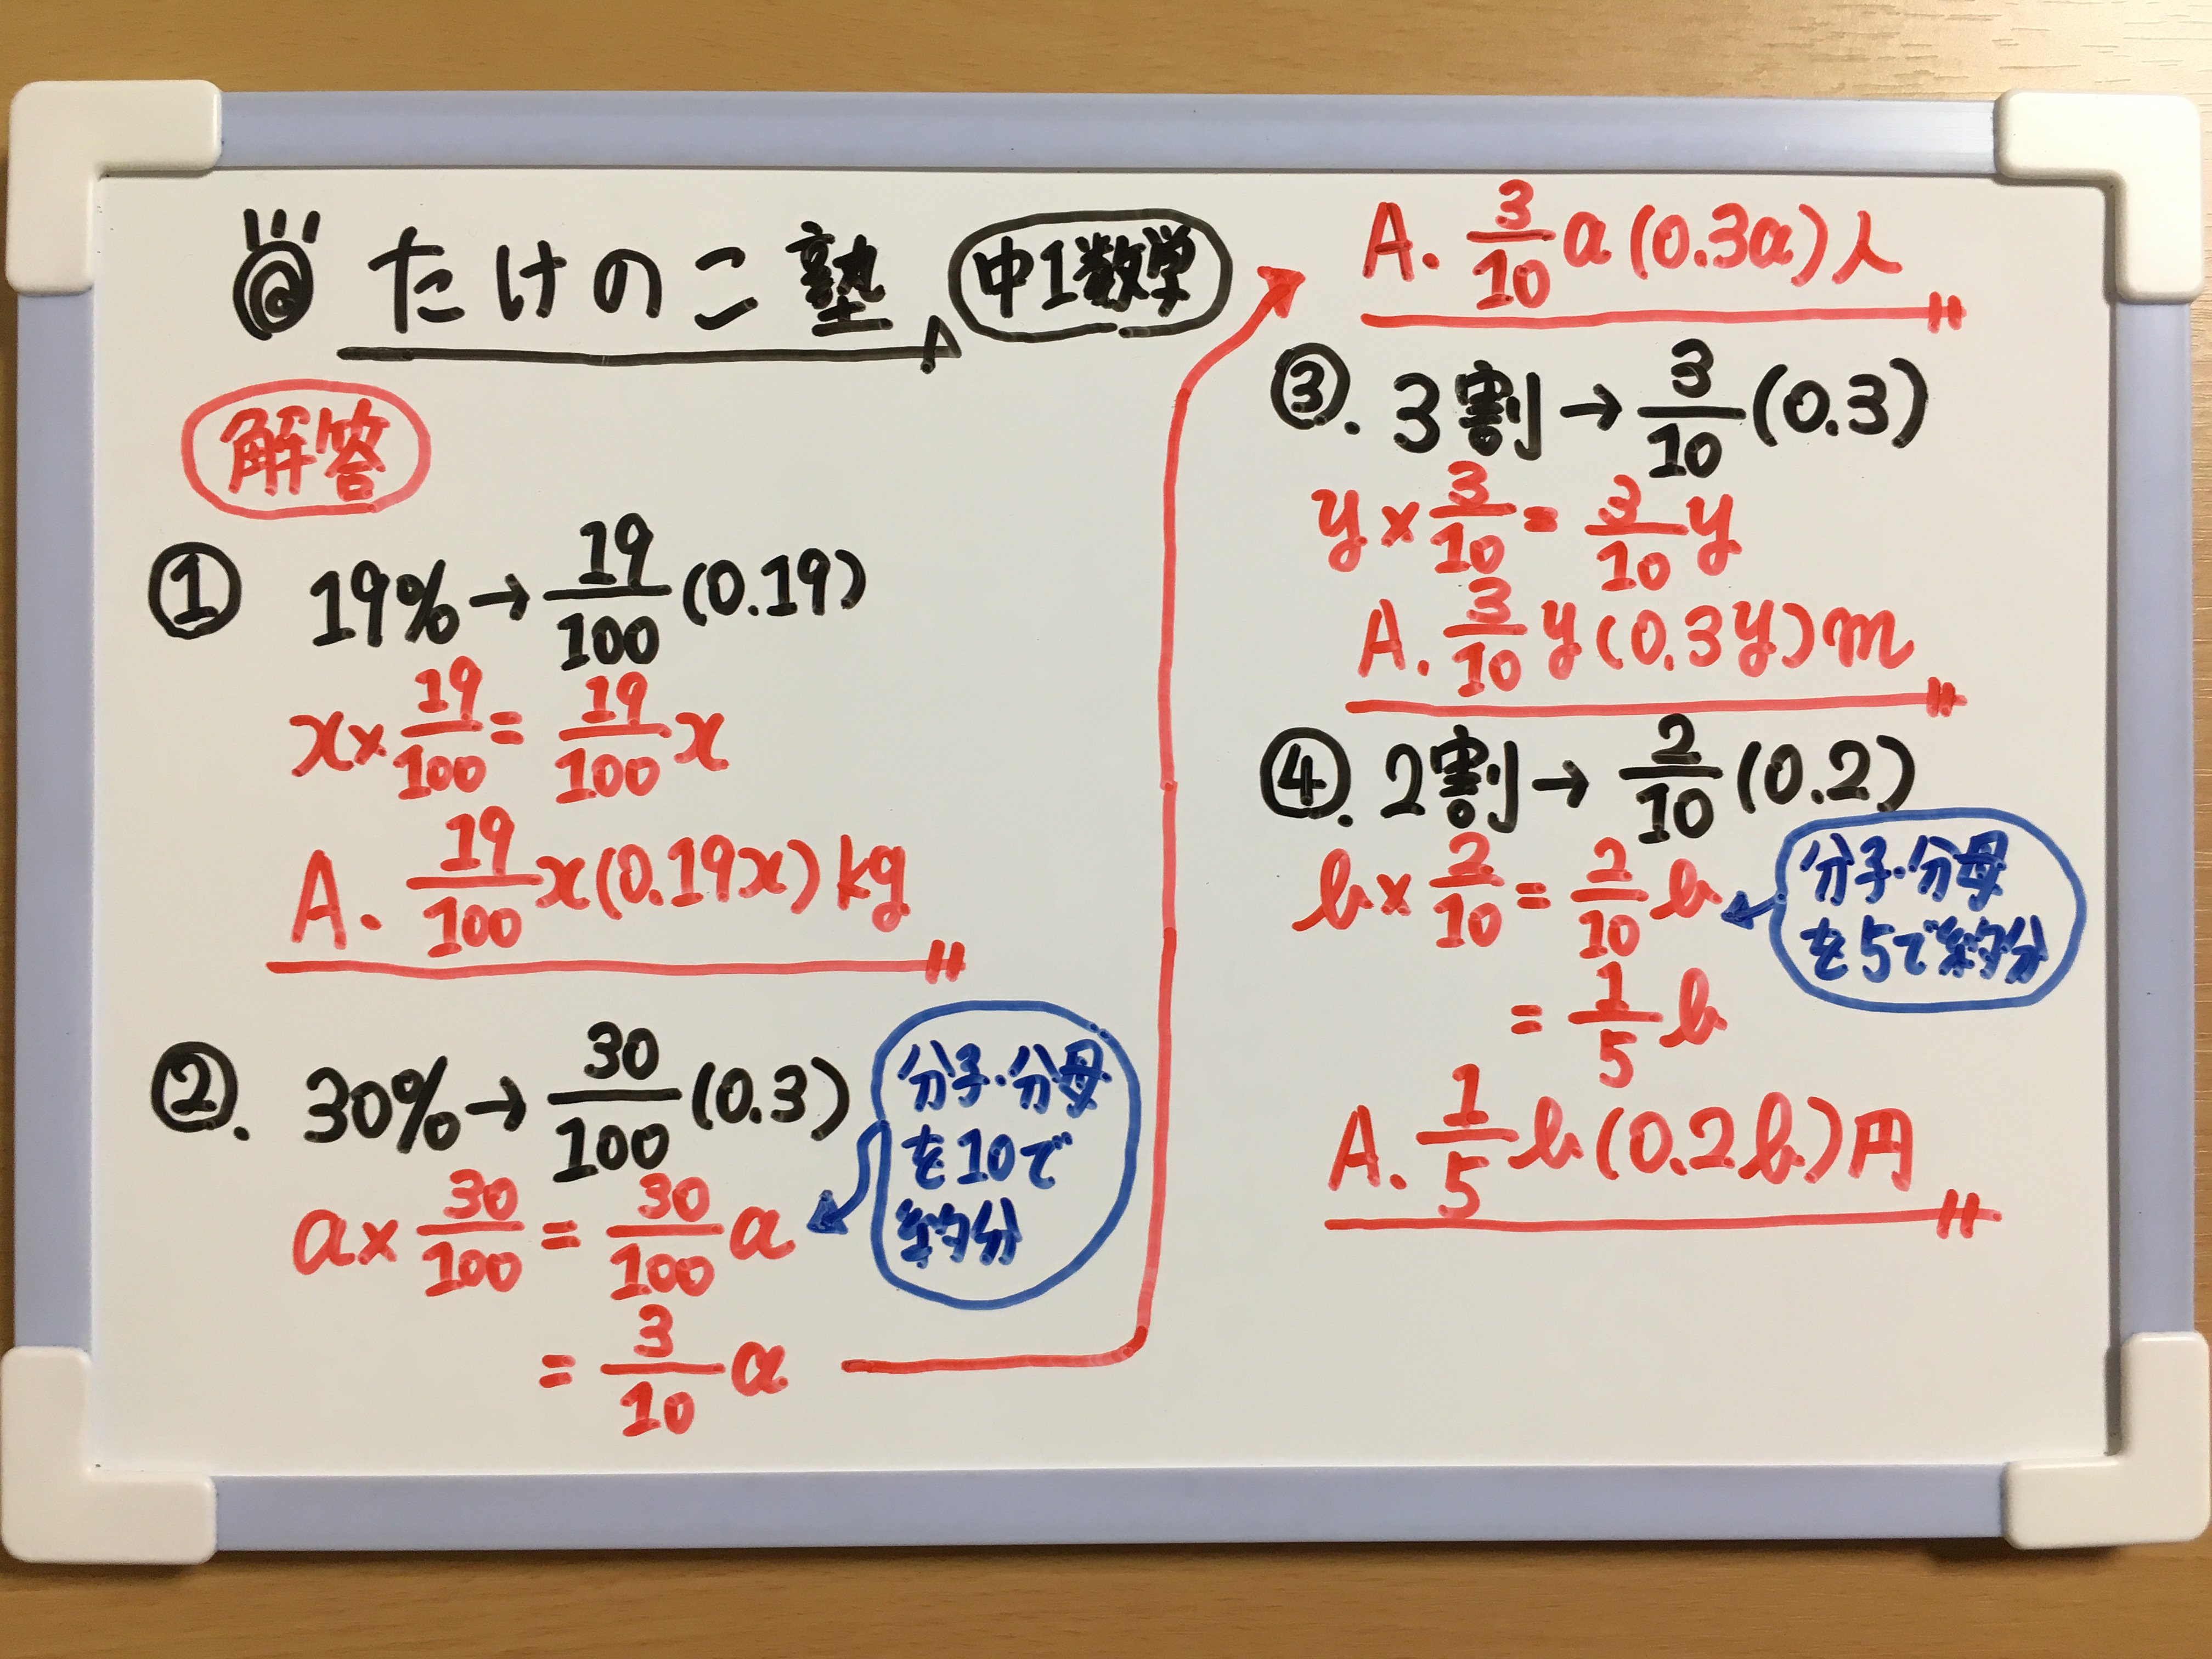 たけのこ塾 中1数学
解答
① 19%→19/100(0.19)
x×19/100=19/100x
A. 19/100x(0.19x)kg
②. 30%→30/100(0.3)
a×30/100=30/100a
分子・分母
を10で
約分
=3/10a
A. 3/10a(0.3a)人
③. 3割→3/10(0.3)
y×3/10=3/10y
A. 3/10y(0.3y)m
④. 2割→2/10(0.2)
b×2/10=2/10b
分子・分母
を5で約分
=1/5b
A. 1/5b(0.2b)円